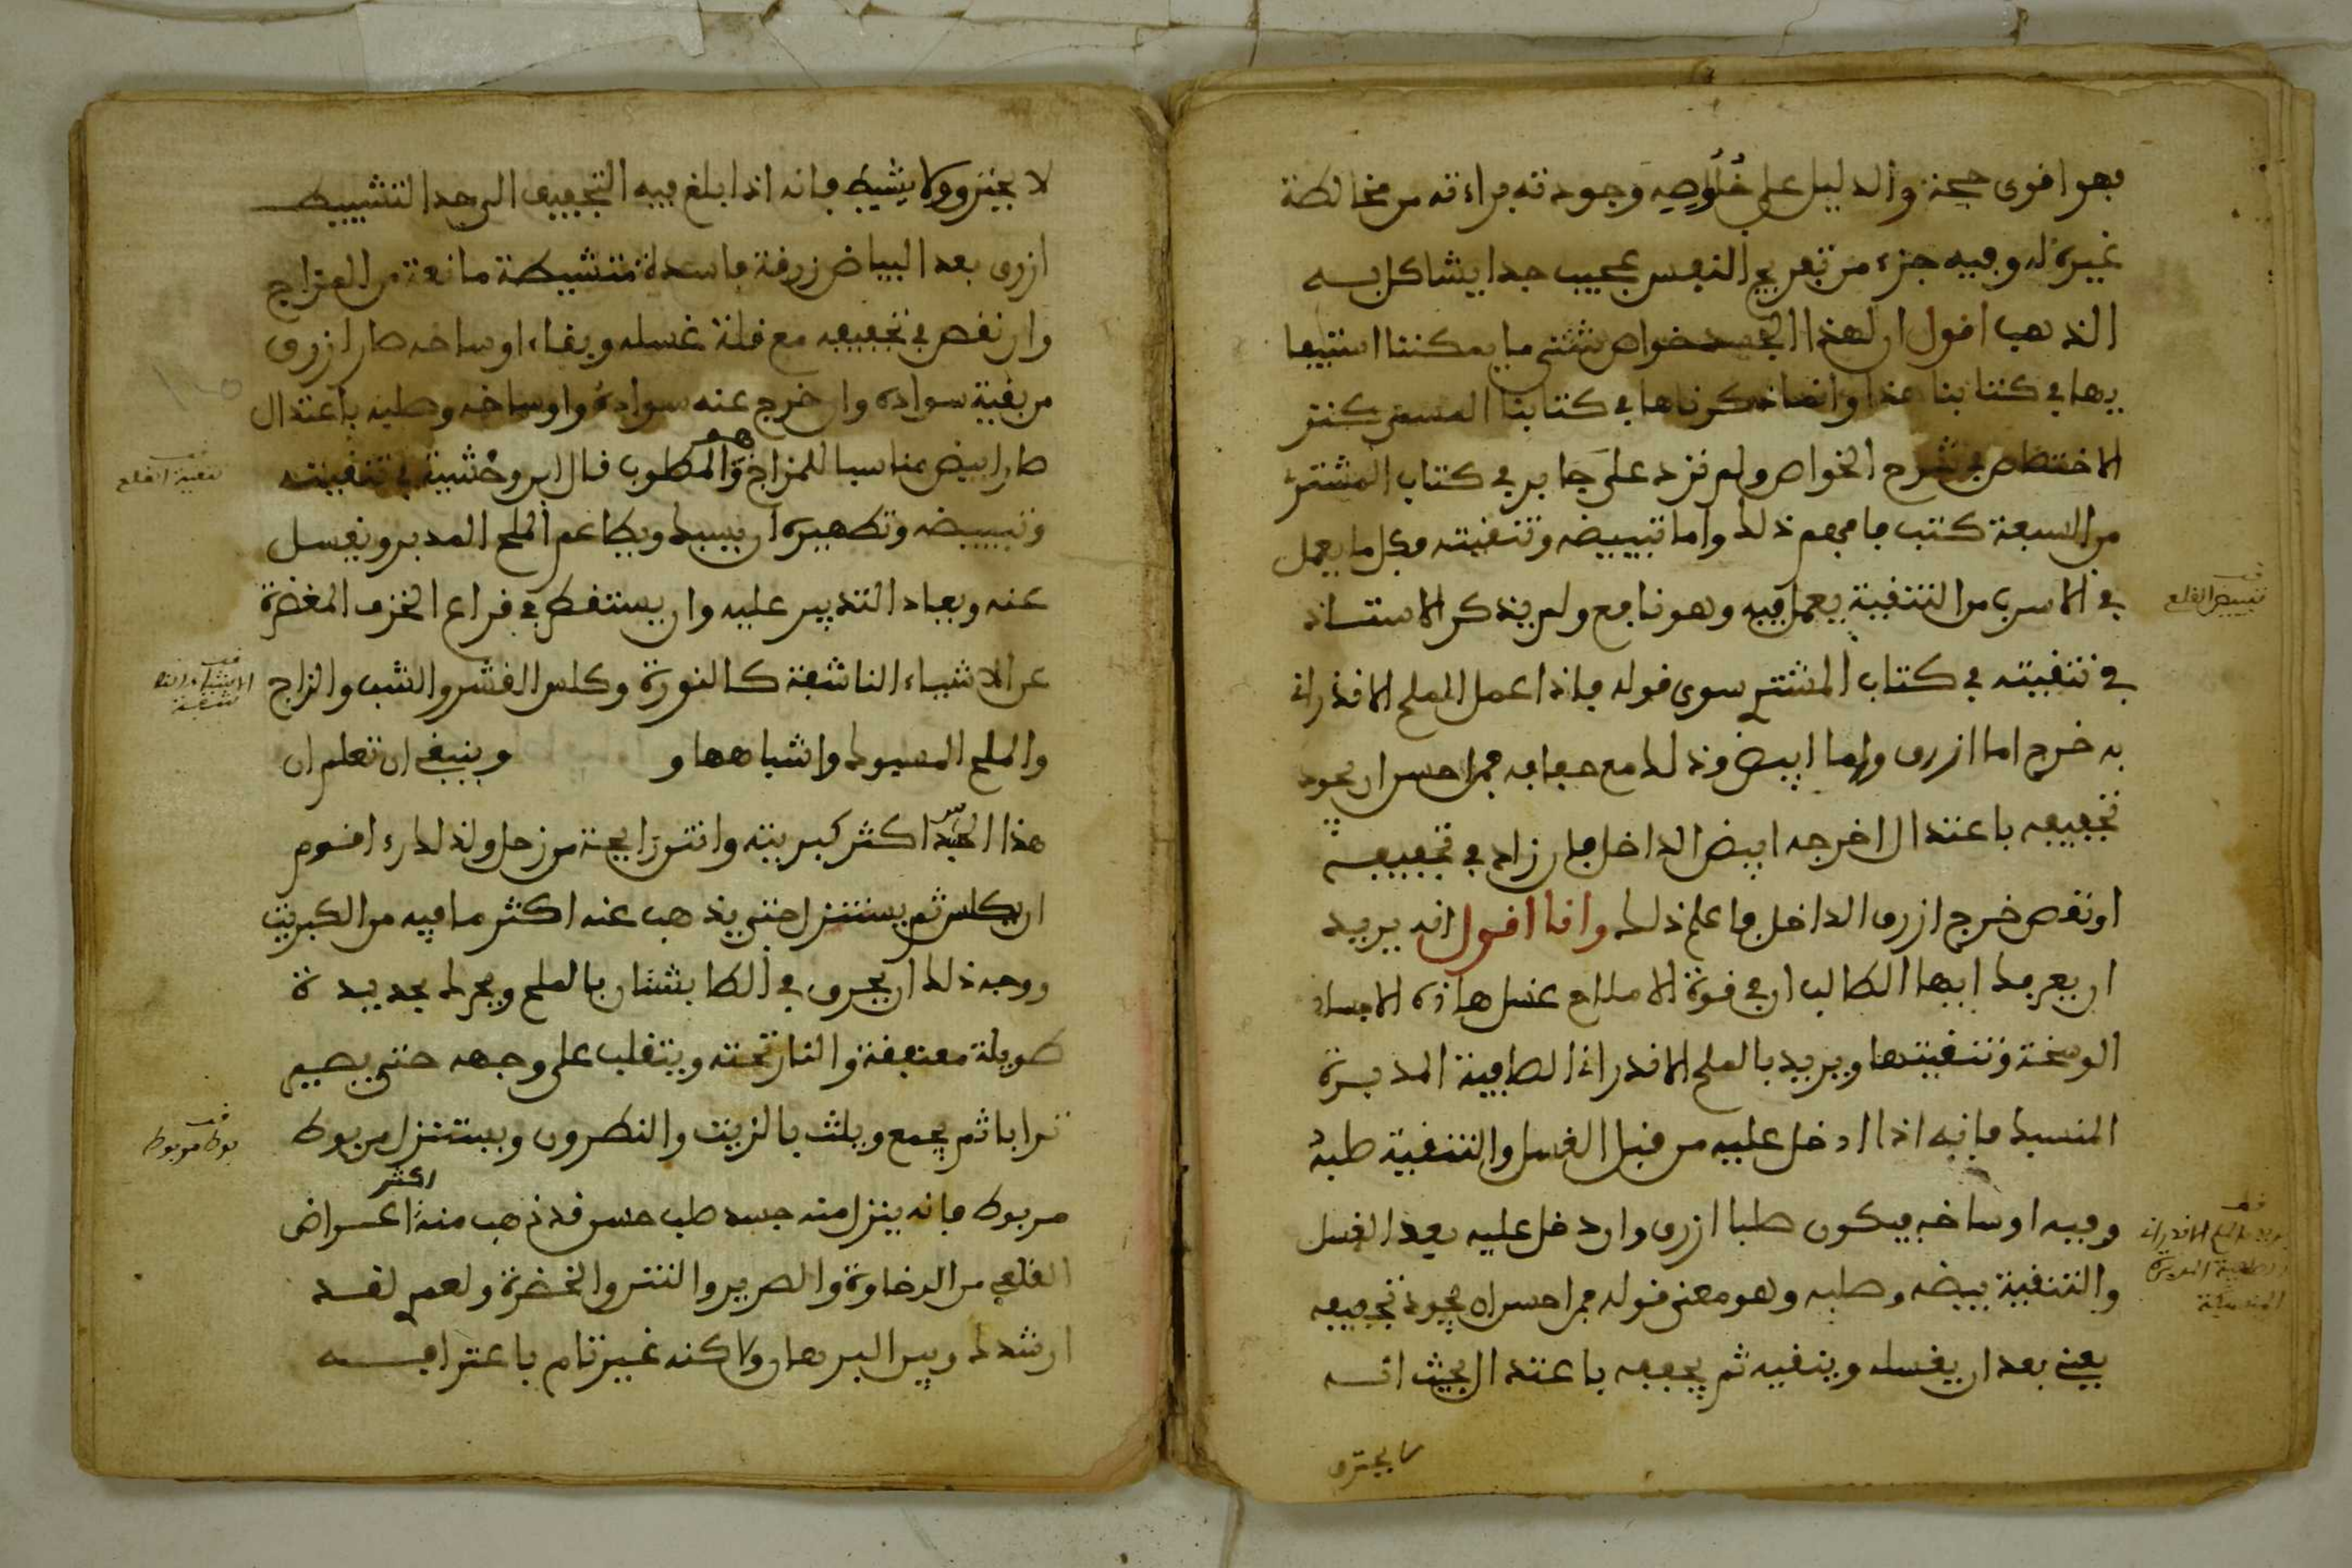 فهو اقوى حجة والدليل على خُلُوصِه وجودته براءته من مخالطة
غيره له وفيه جزء من تفريح النفس عجيب جدا يشاكل به
الذهب اقول ان لهذا الجسد خواص شتى ما يمكننا
بها في كتابنا هذا وانما ذكرناها في كتابنا المسمى كنز
الاختصاص في شرح الخواص ولم نزد على جابر في كتاب المشتري
من السبعة كتب فافهم ذلك واما تبييضه وتنقيته فكل ما يعمل
في الاسرب من التنقية يعمل فيه وهو نافع ولم يذكر الاستاذ
في تنقيته في كتاب المشتري سوى قوله فاذا عمل الملح الاندراني
به خرج اما ازرق واما ابيض وذلك مع جفافه فمن احسن ان يجود
تجفيفه باعتدال اخرجه ابيض الداخل فان زاد في تجفيفه
او نقص خرج ازرق الداخل فاعلم ذلك وانا اقول انه يريد
ان يعرفك ايها الطالب ان في قوة الاملاح غسل هاذه الاجساد
الوسخة وتنقيتها ويريد بالملح الاندراني الطافية المدبرة
المنسبك فانه اذا ادخل عليه من قبل الغسل والتنقية صلبه
وفيه اوساخه فيكون صلبا ازرق وان دخل عليه بعد الغسل
والتنقية بيضه وصلبه وهو معنى قوله فمن احسن ان يجود تجفيفه
يعني بعد ان يغسله وينقيه ثم يجففه باعتدال بحيث انه
لا يحترق
تبييض القلع
لا يحترق ولا يشيط فانه اذا بلغ فيه التجفيف الى حد التشييط
ازرق بعد البياض زرقة فاسدة متشيطة مانعة من المزاج
وان نقص في تجفيفه مع قلة غسله وبقاء اوساخه صار ازرق
من بقية سواده وان خرج عنه سواده واوساخه وصلبه باعتدال
صار ابيض مناسبا للمزاج وهو المطلوب قال ابن وحشية في تنقيته
وتبييضه وتطهيره ان يسبك ويطاعم الملح المدبر ويغسل
عنه ويعاد التدبير عليه وان يستقطر في قراع الخزف المغضرة
عن الاشياء الناشفة كالنورة وكلس القشر والشب والزاج
والملح المسبوك واشباهها و وينبغي ان تعلم ان
هذا الجسد اكثر كبريتية وانتن رايحة من زحل ولذلك راء اقوم
ان يكلس ثم يستنزل حتى يذهب عنه اكثر ما فيه من الكبريت
ووجه ذلك ان يحرق في الطابشتان بالملح ويحرك بحديدة
طويلة معقفة والنار تحته ويتقلب على وجهه حتى يصير
ترابا ثم يجمع ويلت بالزيت والنطرون ويستنزل من بوط
مربوط فانه ينزل منه جسد صلب حسن قد ذهب منه اكثر اعراض
القلعي من الرخاوة والصرير والنتن والخضرة ولعمري لقد
ارشدك وبين البرهان ولاكنه غير تام باعترافه
تنقية القلع
الاشياء الناشفة
بوط مربوط